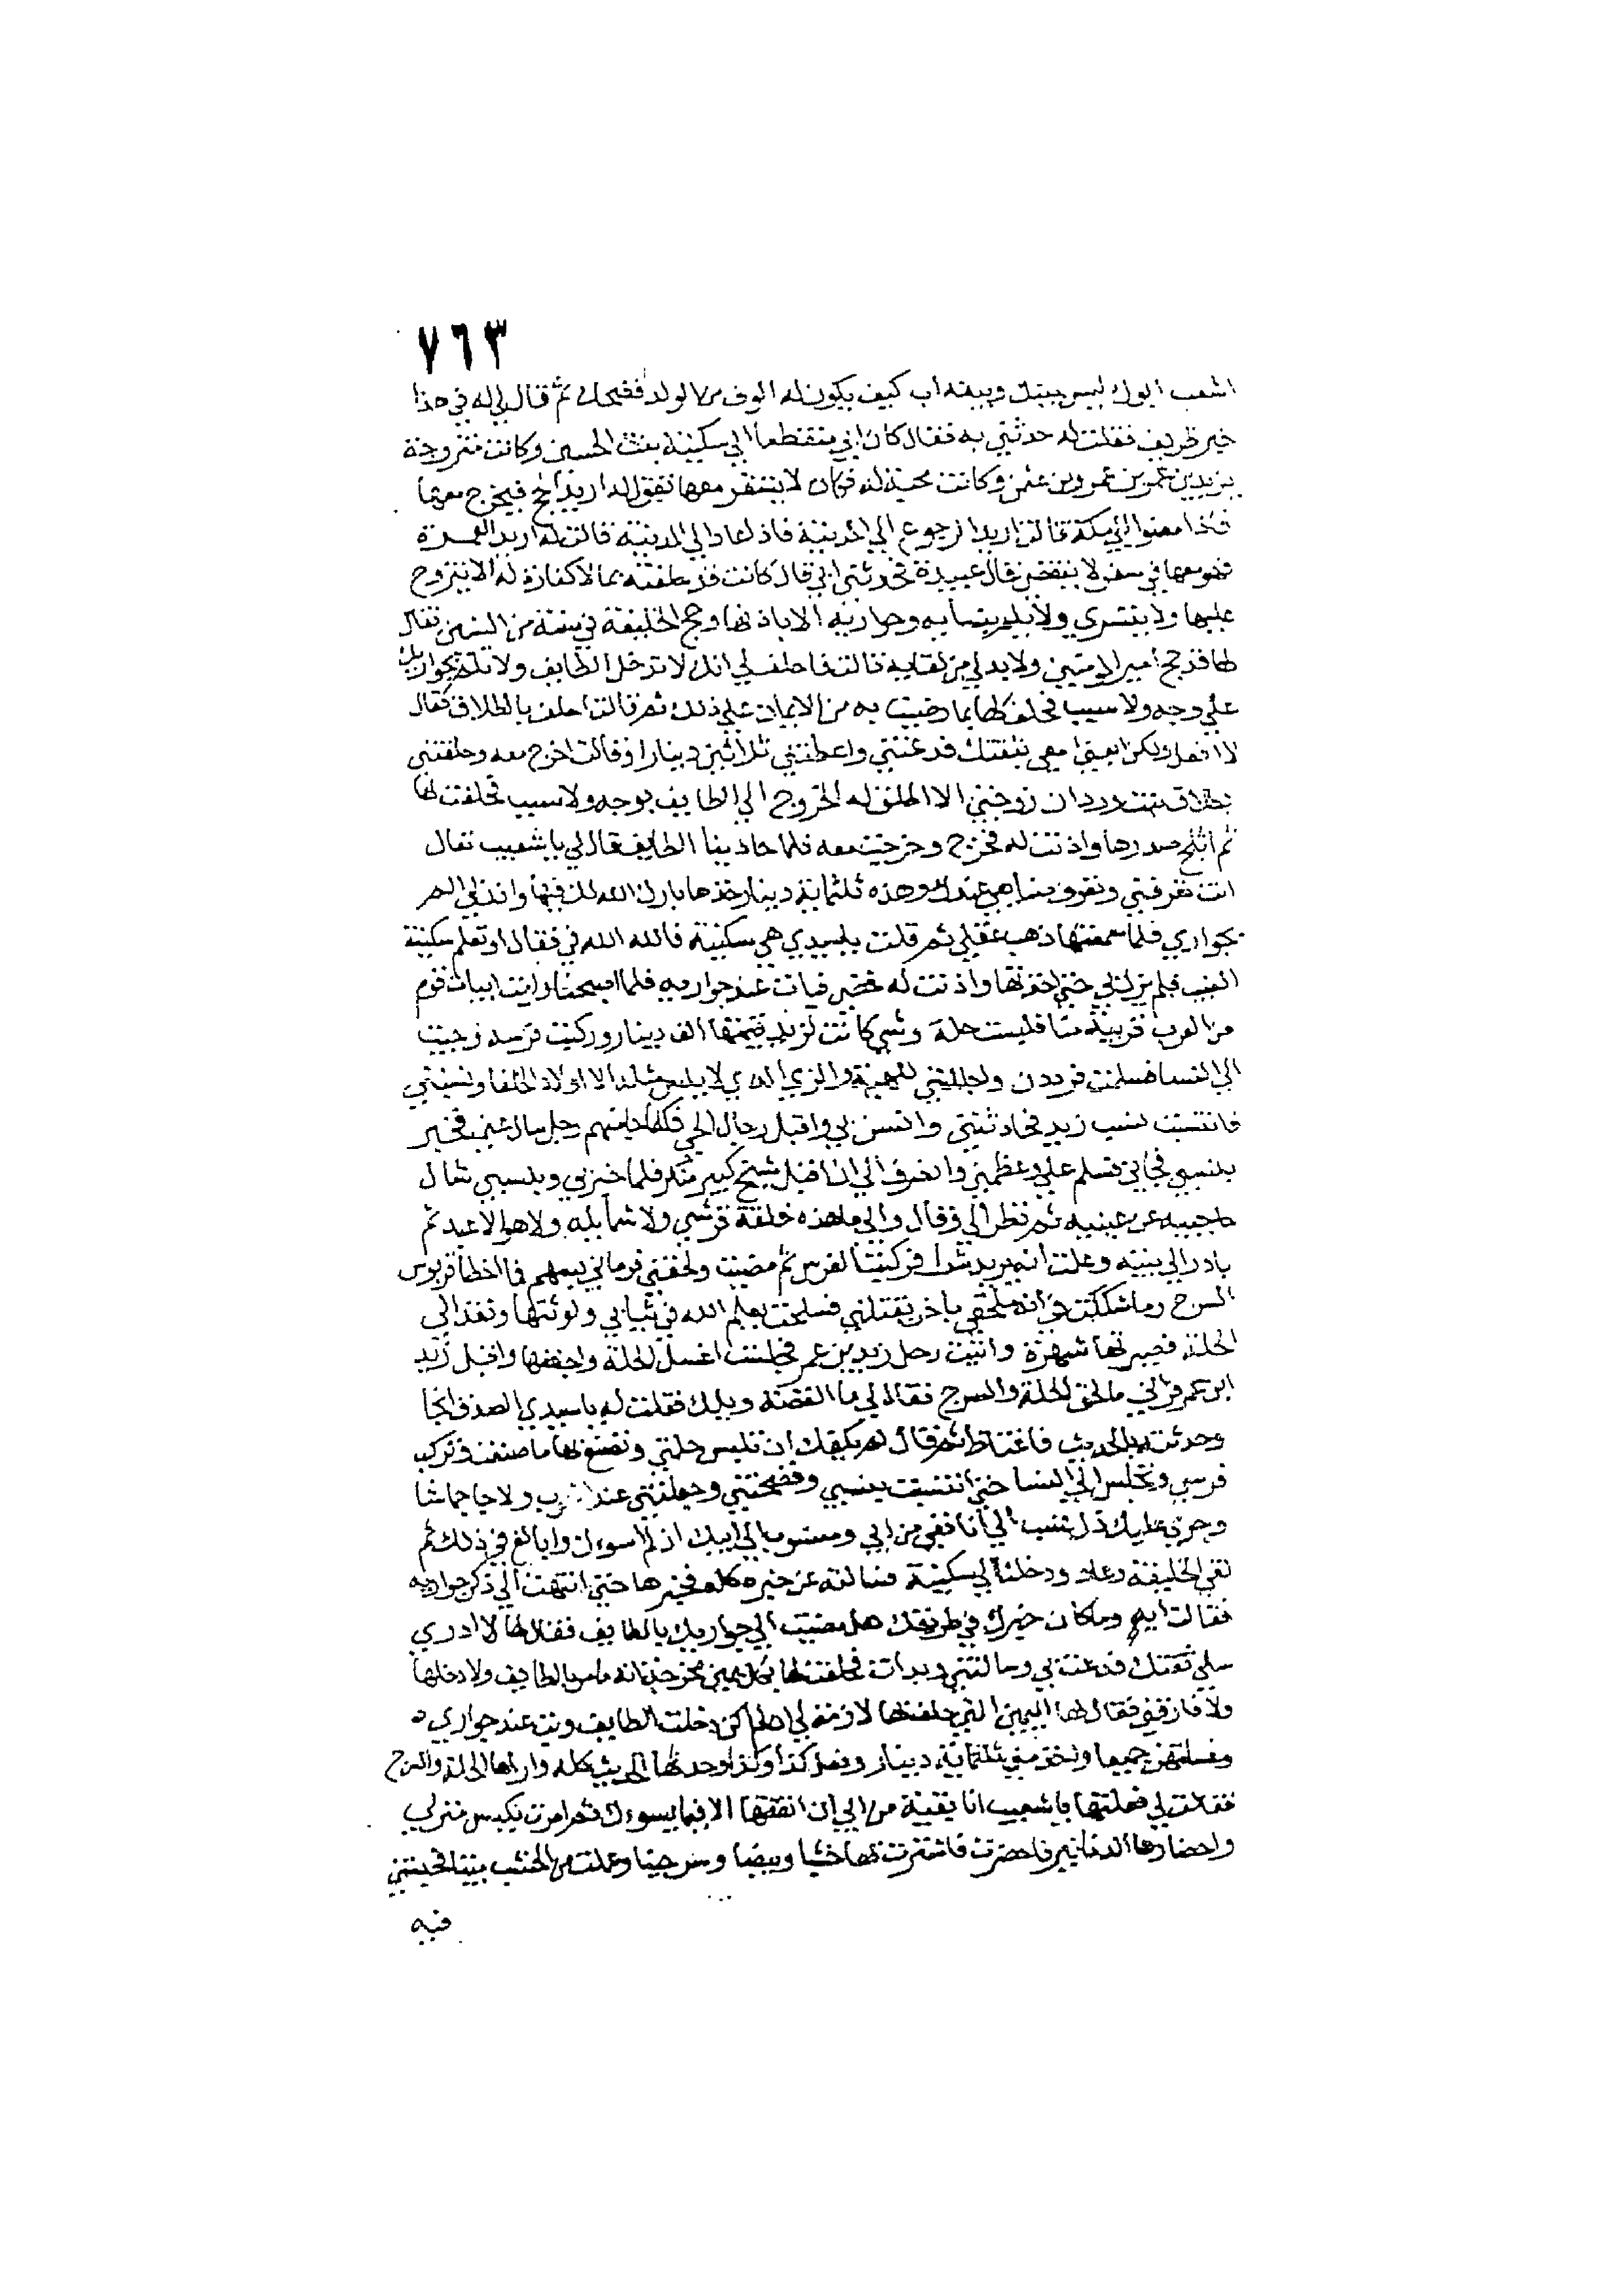 ٧٦٣
اشعب ابوك ليس بينك وبينه اب كيف يكون له الوف من الولد فضحك ثم قال لي له في هذا
خبر ظريف فقلت له حدثني به فقال كان ابي منقطعا الي سكينة بنت الحسين وكانت متزوجة
بزيد بن عمر بن عمرو بن عثمن وكانت محبة له فكان لا يستقر معها تقول له اريد الحج فيخرج معها
فاذا مضوا الي مكة قالت اريد الرجوع الي المدينة فاذا عاد الي المدينة قالت له اريد العمرة
فهو معها في سفر لا ينقضي قال عبيدة فحدثني ابي قال كانت قد حلفته بما لا كفارة له الا يتزوج
عليها ولا يتسري ولا يلم بنسايه وجواريه الا باذنها وحج الخليفة في سنة من السنين فقال
لها قد حج امير المومنين ولا بد لي من لقايه قالت فاحلف لي انك لا تدخل الطايف ولا تلم بجواريك
علي وجه ولا سبب فحلف لها بما رضيت به من الايمان علي ذلك ثم قالت احلف بالطلاق فقال
لا افعل ولكن ابعثي معي بثقتك فدعتني واعطتني ثلاثين دينارا وقالت اخرج معه وحلفتني
بطلاق بنت وردان زوجتي الا اطلق له الخروج الي الطايف بوجه ولا سبب فحلفت لها
ثم اثلج صدرها واذنت له فخرج وخرجت معه فلما حاذينا الطايف قال لي يا شعيب تعال
انت تعرفني وتعرف صنايعي عندك وهذه ثلثماية دينار خذها بارك الله لك فيها واذن لي الم
بجواري فلما سمعتها ذهب عقلي ثم قلت يا سيدي هي سكينة فالله الله في فقال اوتعلم سكينة
الغيب فلم يزل بي حتي اخذتها واذنت له فمضي فبات عند جواريه فلما اصبحنا رايت ابيات قوم
من العرب قريبة منا فلبست حلة وشي كانت لزيد قيمتها الف دينار وركبت فرسه وجيت
الي النسا فسلمت فرددن واجللنني للهيئة والزي الذي لا يلبس مثله الا اولاد الخلفا ونسبنني
فانتسبت نسب زيد فحادثنني وانسن بي واقبل رجال الحي فكلما جاء منهم رجل سال عني فخبر
بنسبي فجاني فسلم علي وعظمني وانصرف الي ان اقبل شيخ كبير منكر فلما خبر بي وبنسبي شال
حاجبيه عن عينيه ثم نظر الي وقال وابي ما هذه خلقة قرشي ولا شمايله ولا هو الا عبد ثم
بادر الي بيته وعلمت انه يريد شرا فركبت الفرس ثم مضيت ولحقني فرماني بسهم فما اخطا قربوس
السرج وما شككت في انه ملحقي باخر يقتلني فسلحت يعلم الله في ثيابي ولوثتها ونفذ الي
الحلة فصيرتها شهرة واتيت رحل زيد بن عمر فجلست اغسل الحلة واجففها واقبل زيد
ابن عمر فراي ما لحق الحلة والسرج فقال لي ما القصة ويلك فقلت له يا سيدي الصدق انجا
وحدثته بالحديث فاغتاظ ثم قال لم يكفك ان تلبس حلتي وتصنع بها ما صنعت وتركب
فرسي وتجلس الي النسا حتي انتسبت بنسبي وفضحتني وجعلتني عند العرب ولاجا جماشا
وجري عليك ذل نسب الي انا نفي من ابي ومنسوب الي ابيك ان لم اسوءك وابالغ في ذلك ثم
لقي الخليفة وعاد ودخلنا الي سكينة فسالته عن خبره كله فخبرها حتي انتهت الي ذكر جواريه
فقالت ايه وما كان خبرك في طريقك هل مضيت الي جواريك بالطايف فقال لها لا ادري
سلي ثقتك فدعت بي وسالتني وبدات فحلفت لها بكل يمين محرجة انه ما مر بالطايف ولا دخلها
ولا فارقني فقال لها اليمين التي حلف لها لازمة لي ان لم اكن دخلت الطايف وبت عند جواري
وغسلتهن جميعا واخذ مني ثلثماية دينار وفعل كذا وكذا وحدثها الحديث كله واراها الحلة والسرج
فقالت لي فعلتها يا شعيب انا نفية من ابي ان انفقتها الا فيما يسوءك ثم امرت بكبس منزلي
واحضارها الدنانير فاحضرت فاشترت بها خشبا وبيضا وسرجينا وعملت من الخشب بيتا فحبستني
فيه